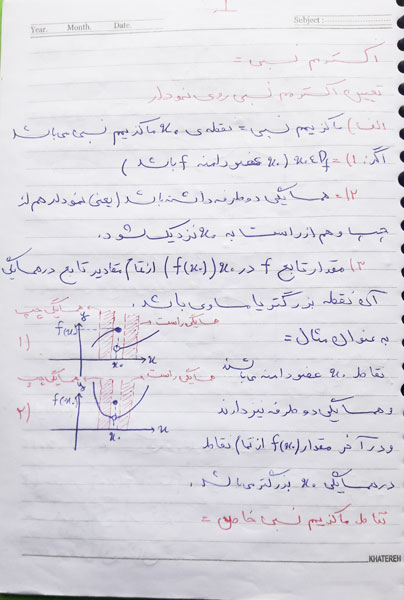 1
Year. Month. Date. Subject :
اکسترمم نسبی =
تعیین اکسترمم نسبی روی نمودار
الف) ماکزیمم نسبی = نقطه‌ی x₀ ماکزیمم نسبی می‌باشد
اگر: ۱) x₀∈Df (x₀ عضو دامنه f باشد)
۲) = همسایگی دو طرفه داشته باشد (یعنی نمودار هم از
چپ و هم از راست به x₀ نزدیک شود.
۳) مقدار تابع f در x₀ (f(x₀)) از تمام مقادیر تابع در همسایگی
آن نقطه بزرگتر یا مساوی باشد.
به عنوان مثال =
همسایگی چپ
همسایگی راست
۱) y f(x₀) x₀ x
نقاط x₀ عضو دامنه می‌باشند
همسایگی چپ
همسایگی راست
۲) y f(x₀) x₀ x
و همسایگی دو طرفه نیز دارند
و در آخر مقدار f(x₀) از تمام نقاط
در همسایگی x₀ بزرگتر می‌باشد.
نقاط ماکزیمم نسبی خاص =
KHATEREH